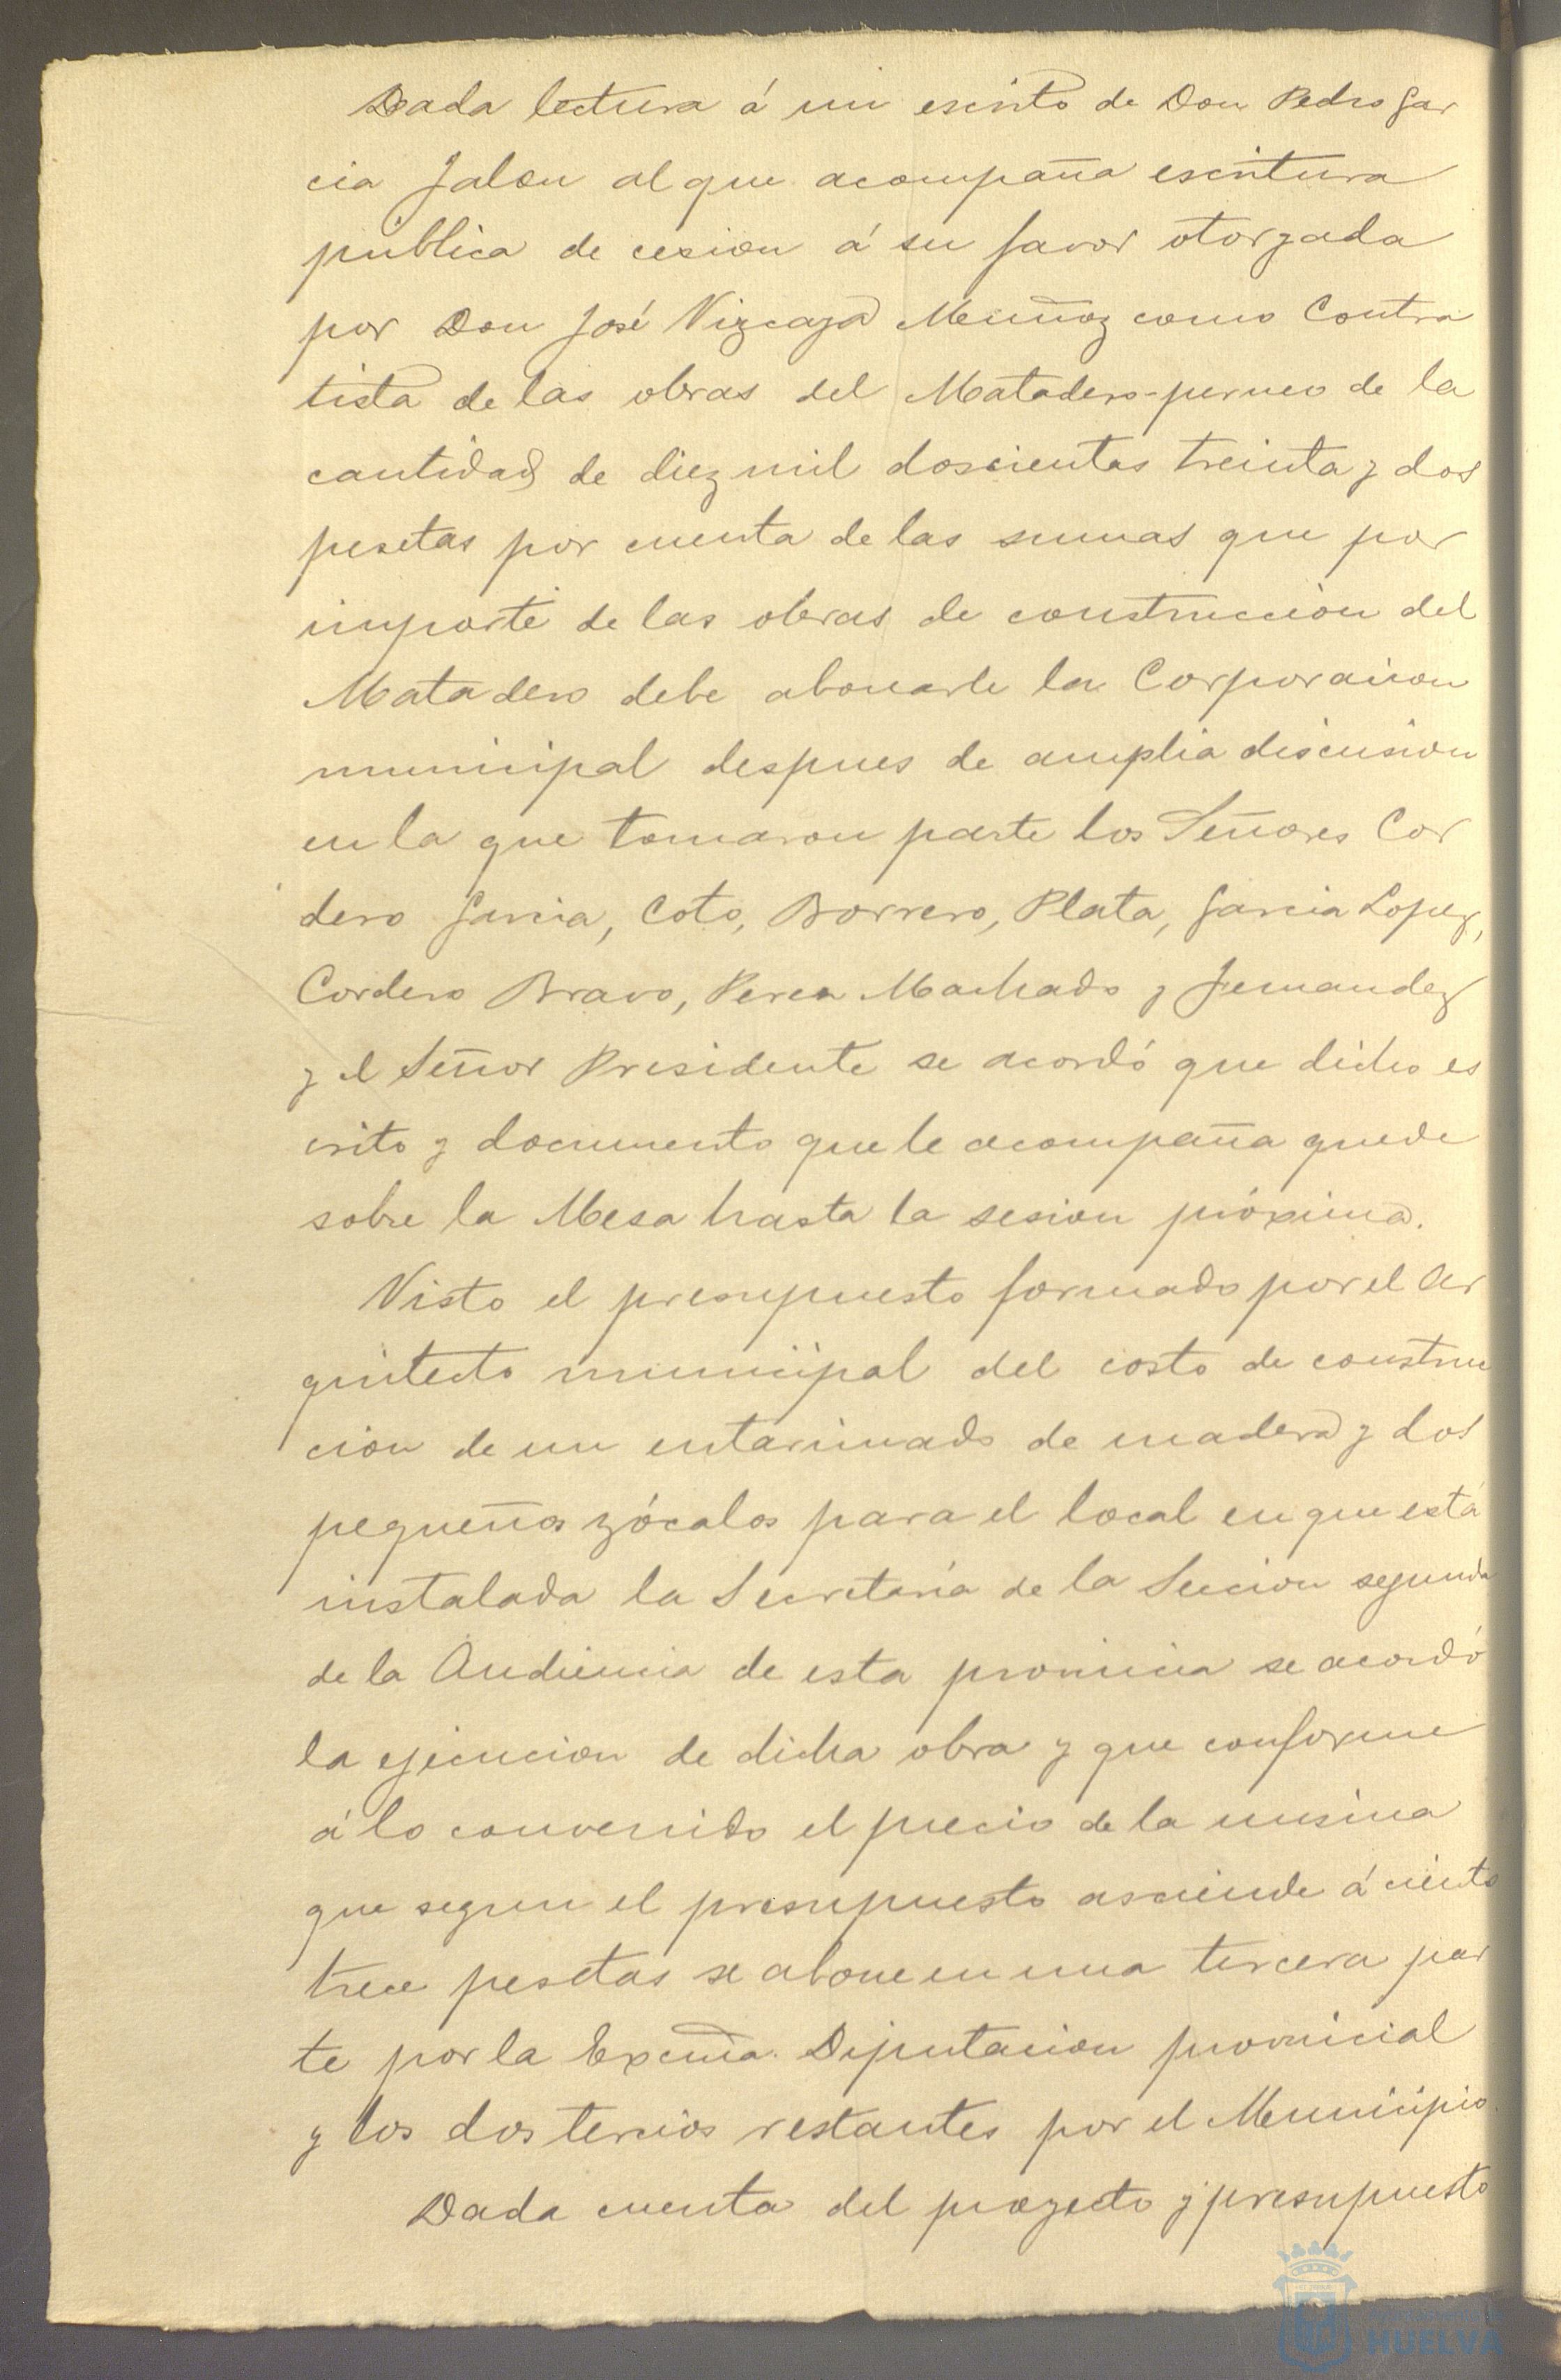 Dada lectura á un escrito de Don Pedro Gar
cia Jalon al que acompaña escritura
pública de cesion á su favor otorgada
por Don José Vizcaya Muñoz como Contra
tista de las obras del Matadero-perneo de la
cantidad de diez mil doscientas treinta y dos
pesetas por cuenta de las sumas que por
importe de las obras de construccion del
Matadero debe abonarle la Corporacion
municipal despues de amplia discusion
en la que tomaron parte los Señores Cor
dero Garcia, Coto, Borrero, Plata, Garcia Lopez,
Cordero Bravo, Perea Machado y Fernandez
y el Señor Presidente se acordó que dicho es
crito y documento que le acompaña quede
sobre la Mesa hasta la sesion próxima.
Visto el presupuesto formado por el Ar
quitecto municipal del costo de construc
cion de un entarimado de madera y dos
pequeños zócalos para el local en que está
instalada la Secretaría de la Seccion segunda
de la Audiencia de esta provincia se acordó
la ejecucion de dicha obra y que conforme
á lo convenido el precio de la misma
que segun el presupuesto asciende á ciento
trece pesetas se abone en una tercera par
te por la Excma. Diputacion provincial
y los dos tercios restantes por el Municipio.
Dada cuenta del proyecto y presupuesto
HUELVA